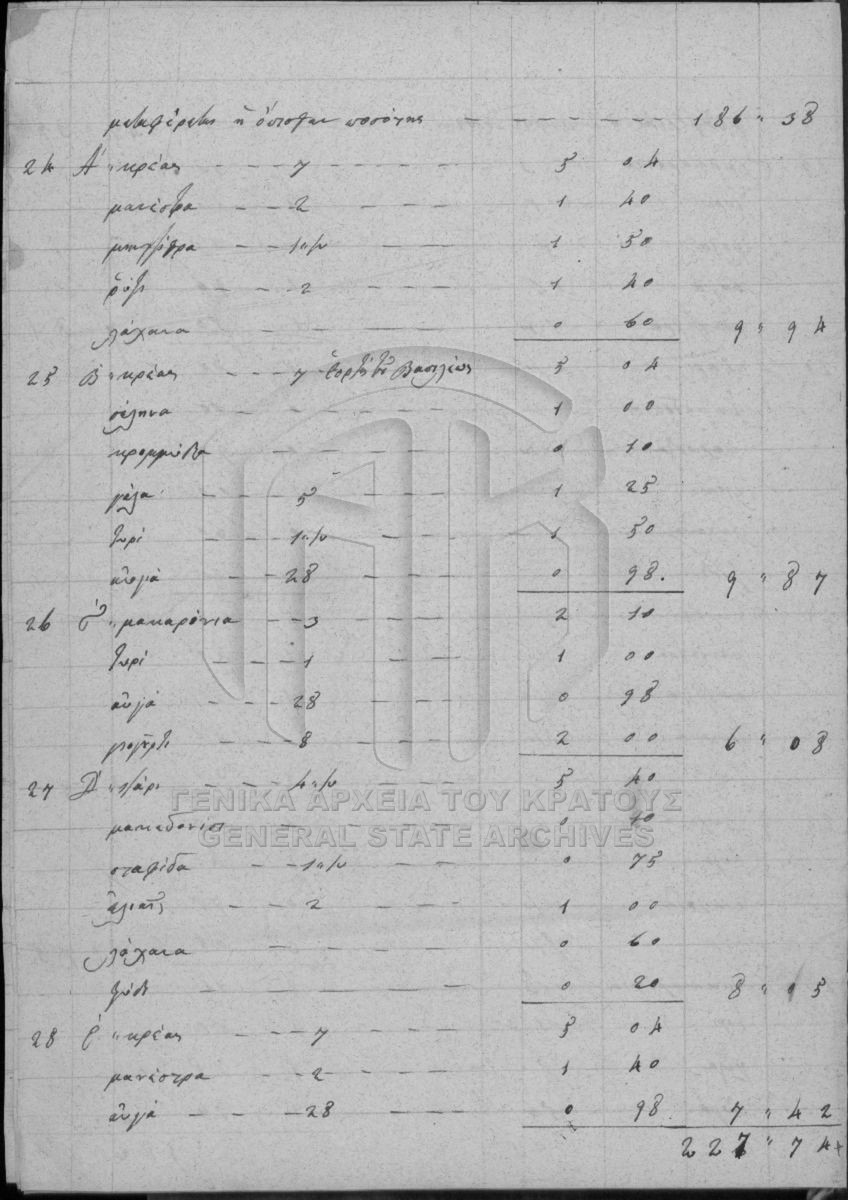 μεταφέρεται ἡ ὄπισθεν ποσότης — — — — — — 186 " 38
24 Α' " κρέας — — 7 — — — 5 04
μανέστρα — 2 — — — 1 40
μπητζίθρα — 1 " /υ — — — 1 50
ῥύζι — — 2 — — — 1 40
λάχανα — — — — — 0 60 9 " 94
25 Β " κρέας — — 7 ἑορτὴ τοῦ Βασιλέως 5 04
σέλινα — — — — — 1 00
κρομμύδια — — — — — 0 10
γάλα — — 5 — — — 1 25
τυρί — — 1 " /υ — — — 1 50
αὐγά — — 28 — — — 0 98. 9 " 87
26 " μακαρόνια — 3 — — — 2 10
τυρί — — 1 — — — 1 00
αὐγά — — 28 — — — 0 98
γιαγούρτι — — 8 — — — 2 00 6 " 08
27 Δ' " ψάρι — — 4 " /υ — — — 5 40
μακεδονίσι — — — — 0 10
σταφίδα — — 1 " /υ — — — 0 75
— — 2 — — — 1 00
λάχανα — — — — — 0 60
— — — — — 0 20 8 " 05
28 " κρέας — — 7 — — — 5 04
μανέστρα — — 2 — — — 1 40
αὐγά — — 28 — — — 0 98 7 " 42
227 " 74
ΓΕΝΙΚΑ ΑΡΧΕΙΑ ΤΟΥ ΚΡΑΤΟΥΣ
GENERAL STATE ARCHIVES